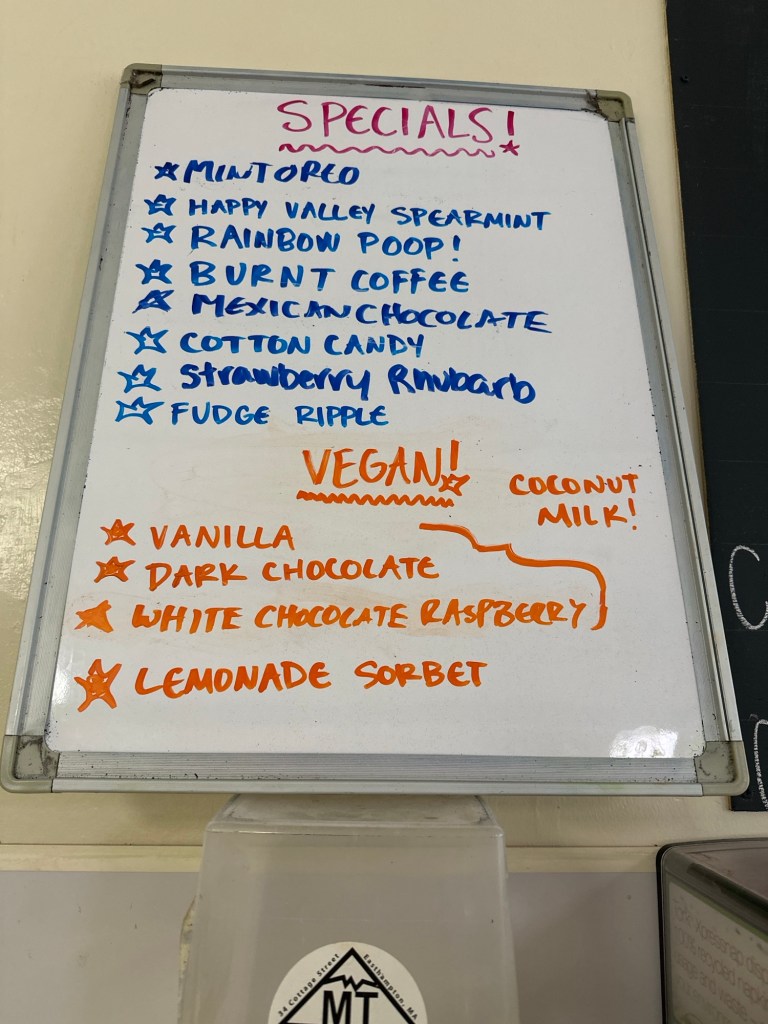 SPECIALS!
MINT OREO
HAPPY VALLEY SPEARMINT
RAINBOW POOP!
BURNT COFFEE
MEXICAN CHOCOLATE
COTTON CANDY
Strawberry Rhubarb
FUDGE RIPPLE
VEGAN!
COCONUT
MILK!
VANILLA
DARK CHOCOLATE
WHITE CHOCOLATE RASPBERRY
LEMONADE SORBET
34 Cottage Street Easthampton, MA
MT